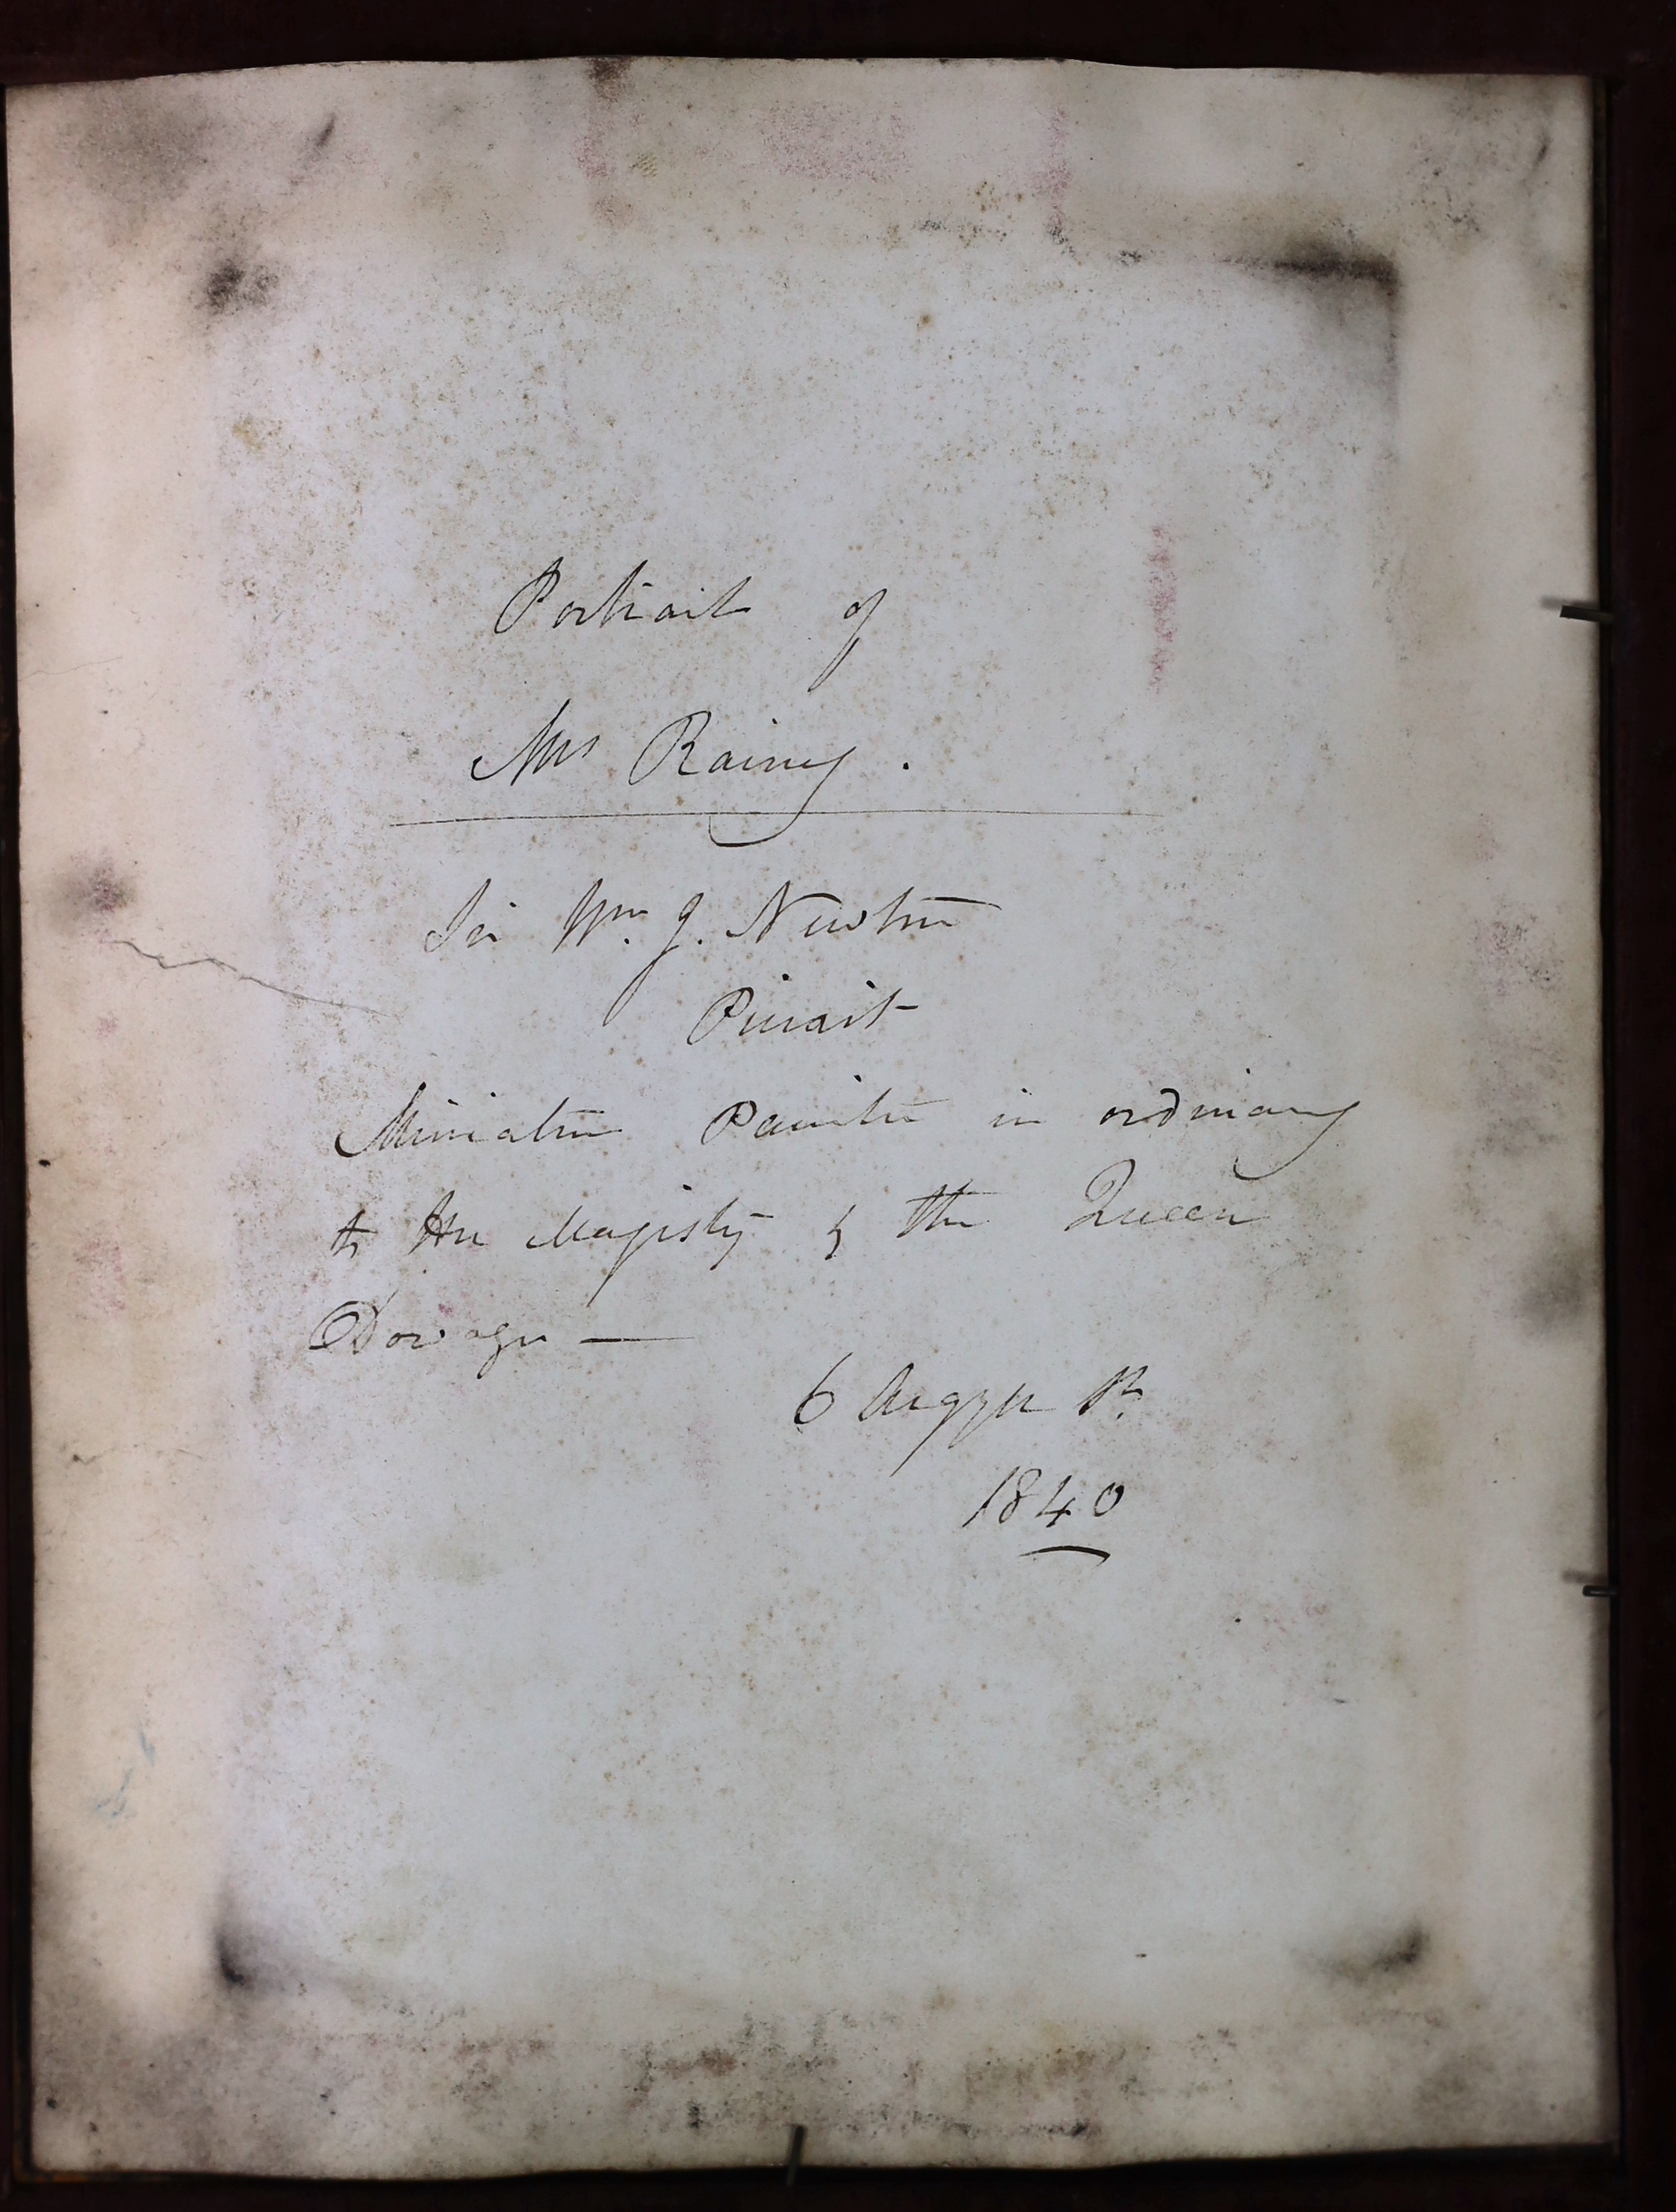 Portrait of
Mrs Rainey.
Sir Wm. J. Newton
Pinxit
Miniature Painter in ordinary
to Her Majesty & the Queen
Dowager —
6 Argyll St.
1840